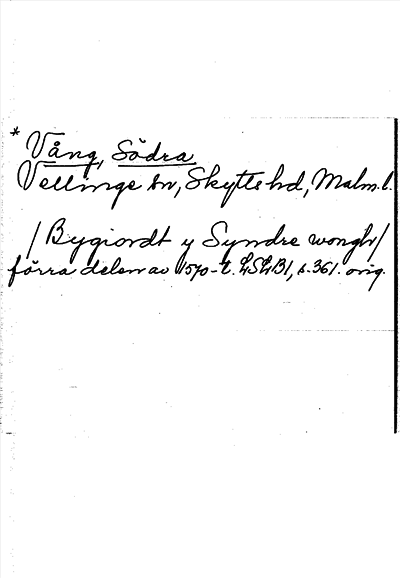 * Vång, Södra
Vellinge sn, Skytts hd, Malm. l.
/Bygiordt y Syndre wongh/
förra delen av 1570-t. LSLB1, s. 361. orig.